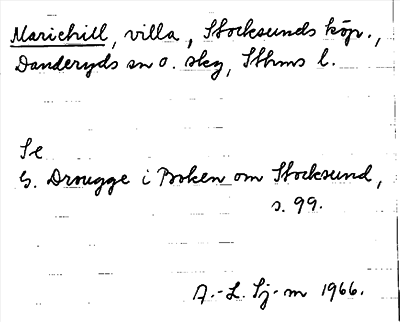 Mariehill, villa, Stocksunds köp.,
Danderyds sn o. skg, Sthms l.
Se
G. Drougge i Boken om Stocksund,
s. 99.
A.-L. Sj-m 1966.